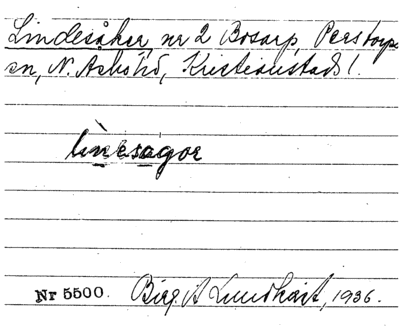 Lindesåker, nr 2 Bosarp, Perstorps
sn, N. Åsbo hd, Kristianstads l.
linesågor
Nr 5500. Birg. A Lundkvist, 1936.